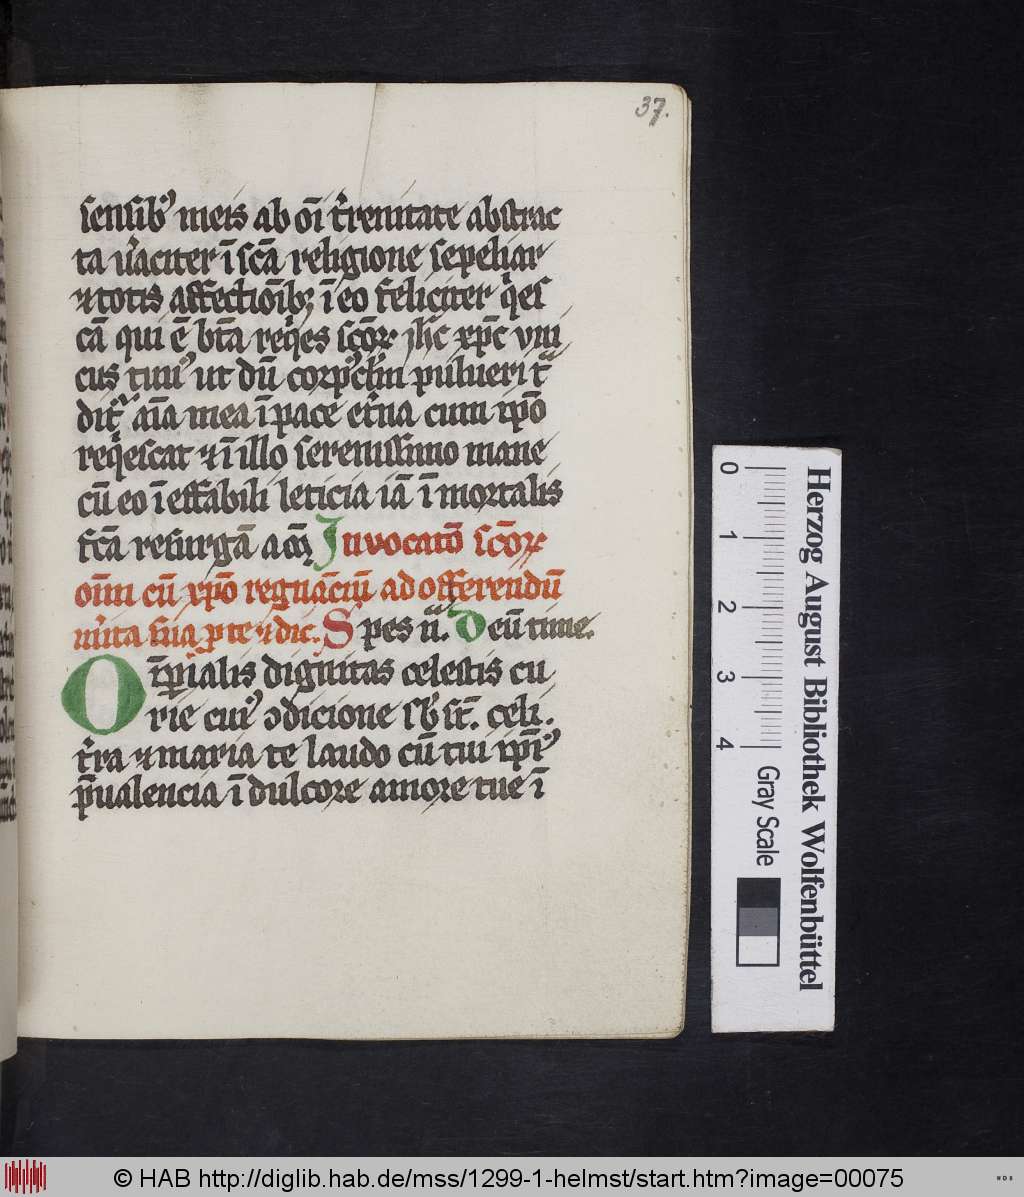 37.
sensibꝰ meis ab oı̄ t'renitate abstrac
ta v'aciter ī scā religione sepeliar
⁊ totis affectiōibꝫ ī eo feliciter qͥes
cā qui ē btā reqͥes scōꝝ ihc̄ xpc̄ vni
cus tuuꝰ ut dū corpꝰclm̄ pulueri tͣ
ditͬ aīa mea ī pace et'na cum ip̄o
reqͥescat ⁊ ī illo serenissimo mane
cū eo ī effabili leticia iā ī mortalis
fcā resurgā a am̄ Invocatō scōꝝ
om̄m cū xp̄o regnāciū ad offerendū
m'ita sua ꝓ te ⁊ dic. Spes nͣ. Deū time.
O īꝑialis dignitas celestis cu
rie cuiꝰ ꝯdicione sb' st̄. celi.
t'ra ⁊ maria te laudo cū tui ip̄iꝰ
p̄ualencia ī dulcore amore tue ī
Herzog August Bibliothek Wolfenbüttel
0 1 2 3 4 Gray Scale
© HAB http://diglib.hab.de/mss/1299-1-helmst/start.htm?image=00075